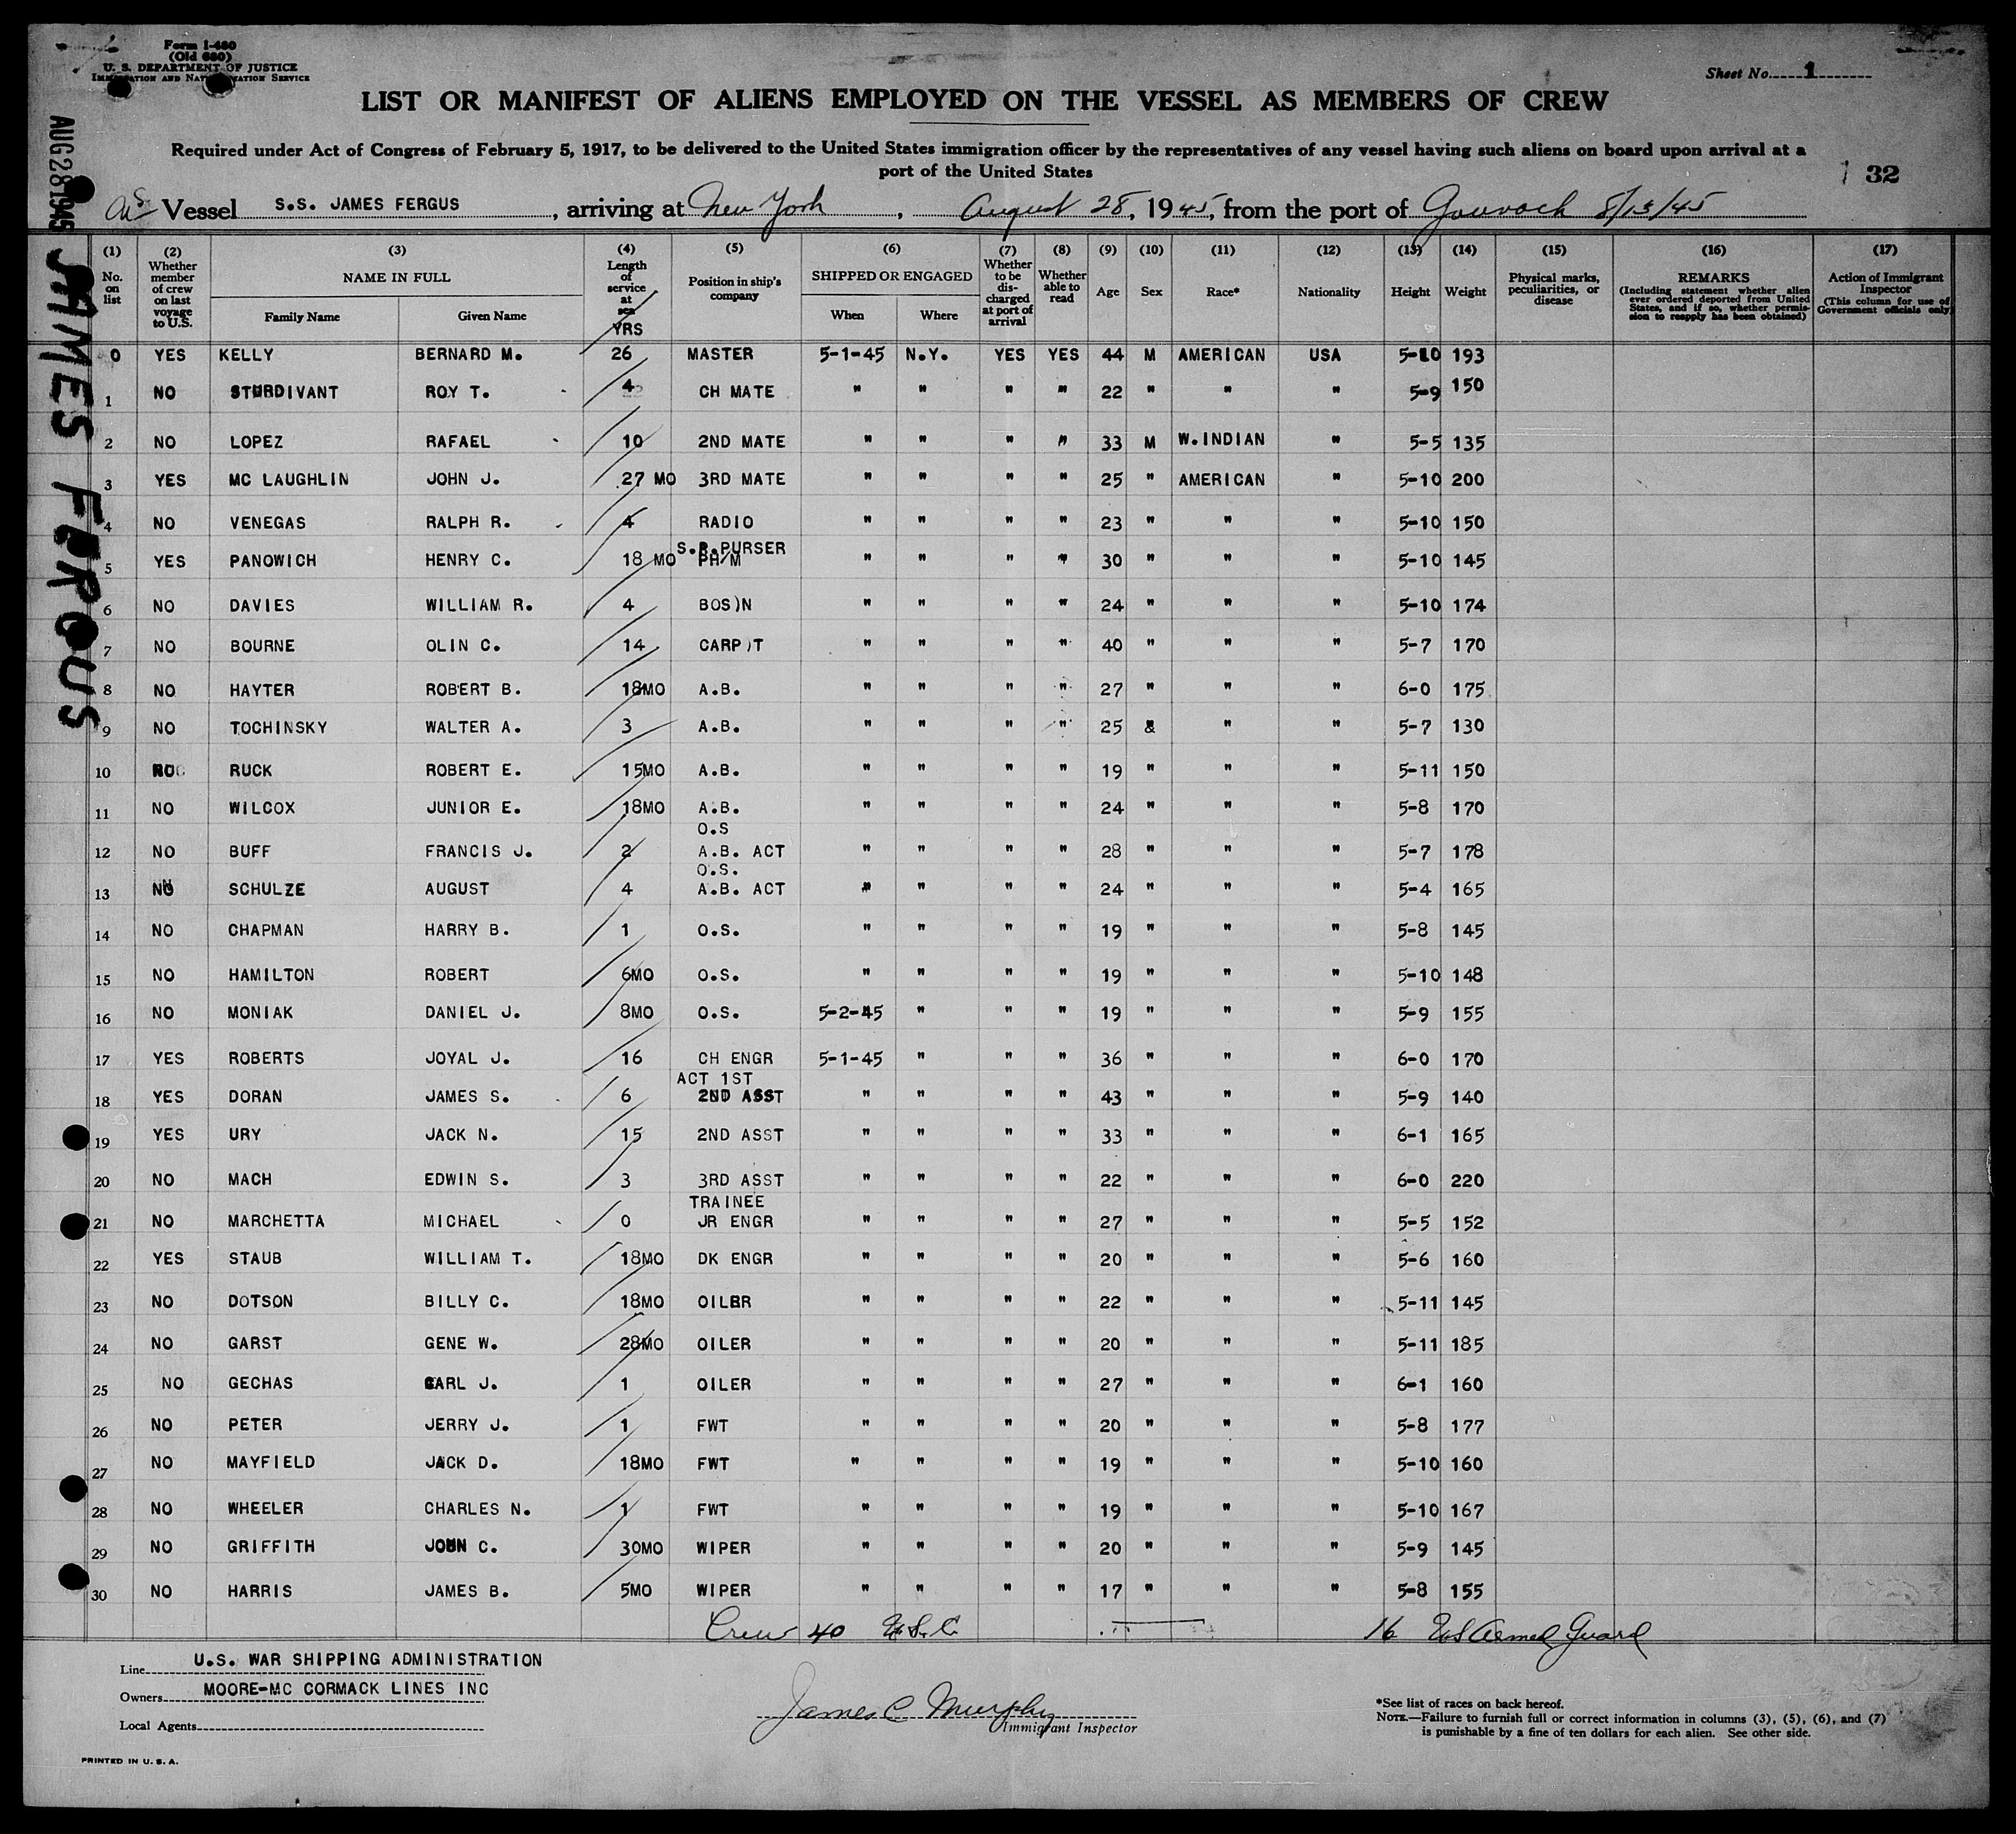 Form I-480
(Old 680)
U. S. DEPARTMENT OF JUSTICE
IMMIGRATION AND NATURALIZATION SERVICE
Sheet No. 1
LIST OR MANIFEST OF ALIENS EMPLOYED ON THE VESSEL AS MEMBERS OF CREW
Required under Act of Congress of February 5, 1917, to be delivered to the United States immigration officer by the representatives of any vessel having such aliens on board upon arrival at a
port of the United States
32
AUG 28 1945
JAMES FERGUS
Vessel S.S. JAMES FERGUS, arriving at New York, August 28, 1945, from the port of Gourock 8/13/45
(1) No. on list (2) Whether member of crew on last voyage to U.S. (3) NAME IN FULL Family Name Given Name (4) Length of service at sea YRS (5) Position in ship's company (6) SHIPPED OR ENGAGED When Where (7) Whether to be discharged at port of arrival (8) Whether able to read (9) Age (10) Sex (11) Race* (12) Nationality (13) Height (14) Weight (15) Physical marks, peculiarities, or disease (16) REMARKS (Including statement whether alien ever ordered deported from United States, and if so, whether permission to reapply has been obtained) (17) Action of Immigrant Inspector (This column for use of Government officials only)
0 YES KELLY BERNARD M. 26 MASTER 5-1-45 N.Y. YES YES 44 M AMERICAN USA 5-10 193
1 NO STURDIVANT ROY T. 4 CH MATE " " " " 22 " " " 5-9 150
2 NO LOPEZ RAFAEL 10 2ND MATE " " " " 33 M W.INDIAN " 5-5 135
3 YES MC LAUGHLIN JOHN J. 27 MO 3RD MATE " " " " 25 " AMERICAN " 5-10 200
4 NO VENEGAS RALPH R. 4 RADIO " " " " 23 " " " 5-10 150
5 YES PANOWICH HENRY C. 18 MO S.R.PURSER PH/M " " " " 30 " " " 5-10 145
6 NO DAVIES WILLIAM R. 4 BOS)N " " " " 24 " " " 5-10 174
7 NO BOURNE OLIN C. 14 CARP)T " " " " 40 " " " 5-7 170
8 NO HAYTER ROBERT B. 18MO A.B. " " " " 27 " " " 6-0 175
9 NO TOCHINSKY WALTER A. 3 A.B. " " " " 25 & " " 5-7 130
10 NO RUCK ROBERT E. 15MO A.B. " " " " 19 " " " 5-11 150
11 NO WILCOX JUNIOR E. 18MO A.B. " " " " 24 " " " 5-8 170
12 NO BUFF FRANCIS J. 2 O.S A.B. ACT " " " " 28 " " " 5-7 178
13 NO SCHULZE AUGUST 4 O.S. A.B. ACT " " " " 24 " " " 5-4 165
14 NO CHAPMAN HARRY B. 1 O.S. " " " " 19 " " " 5-8 145
15 NO HAMILTON ROBERT 6MO O.S. " " " " 19 " " " 5-10 148
16 NO MONIAK DANIEL J. 8MO O.S. 5-2-45 " " " 19 " " " 5-9 155
17 YES ROBERTS JOYAL J. 16 CH ENGR 5-1-45 " " " 36 " " " 6-0 170
18 YES DORAN JAMES S. 6 ACT 1ST 2ND ASST " " " " 43 " " " 5-9 140
19 YES URY JACK N. 15 2ND ASST " " " " 33 " " " 6-1 165
20 NO MACH EDWIN S. 3 3RD ASST " " " " 22 " " " 6-0 220
21 NO MARCHETTA MICHAEL 0 TRAINEE JR ENGR " " " " 27 " " " 5-5 152
22 YES STAUB WILLIAM T. 18MO DK ENGR " " " " 20 " " " 5-6 160
23 NO DOTSON BILLY C. 18MO OILER " " " " 22 " " " 5-11 145
24 NO GARST GENE W. 28MO OILER " " " " 20 " " " 5-11 185
25 NO GECHAS CARL J. 1 OILER " " " " 27 " " " 6-1 160
26 NO PETER JERRY J. 1 FWT " " " " 20 " " " 5-8 177
27 NO MAYFIELD JACK D. 18MO FWT " " " " 19 " " " 5-10 160
28 NO WHEELER CHARLES N. 1 FWT " " " " 19 " " " 5-10 167
29 NO GRIFFITH JOHN C. 30MO WIPER " " " " 20 " " " 5-9 145
30 NO HARRIS JAMES B. 5MO WIPER " " " " 17 " " " 5-8 155
Crew 40 U.S.C. 16 US Armed Guard
Line U.S. WAR SHIPPING ADMINISTRATION
Owners MOORE-MC CORMACK LINES INC
Local Agents
James C Murphy
Immigrant Inspector
*See list of races on back hereof.
NOTE.—Failure to furnish full or correct information in columns (3), (5), (6), and (7)
is punishable by a fine of ten dollars for each alien. See other side.
PRINTED IN U. S. A.